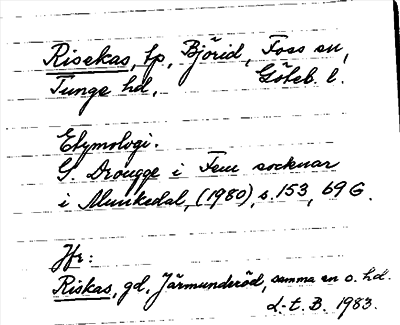 Risekas, tp, Björid, Foss sn,
Tunge hd, Göteb. l.
Etymologi.
G. Drougge i Fem socknar
i Munkedal, (1980), s. 153, 69 G.
Jfr:
Riskas, gd, Järmunderöd, samma sn o. hd.
L-t. B. 1983.